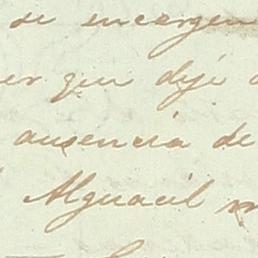 se encargen
que dejé
ausencia de
Alguacil